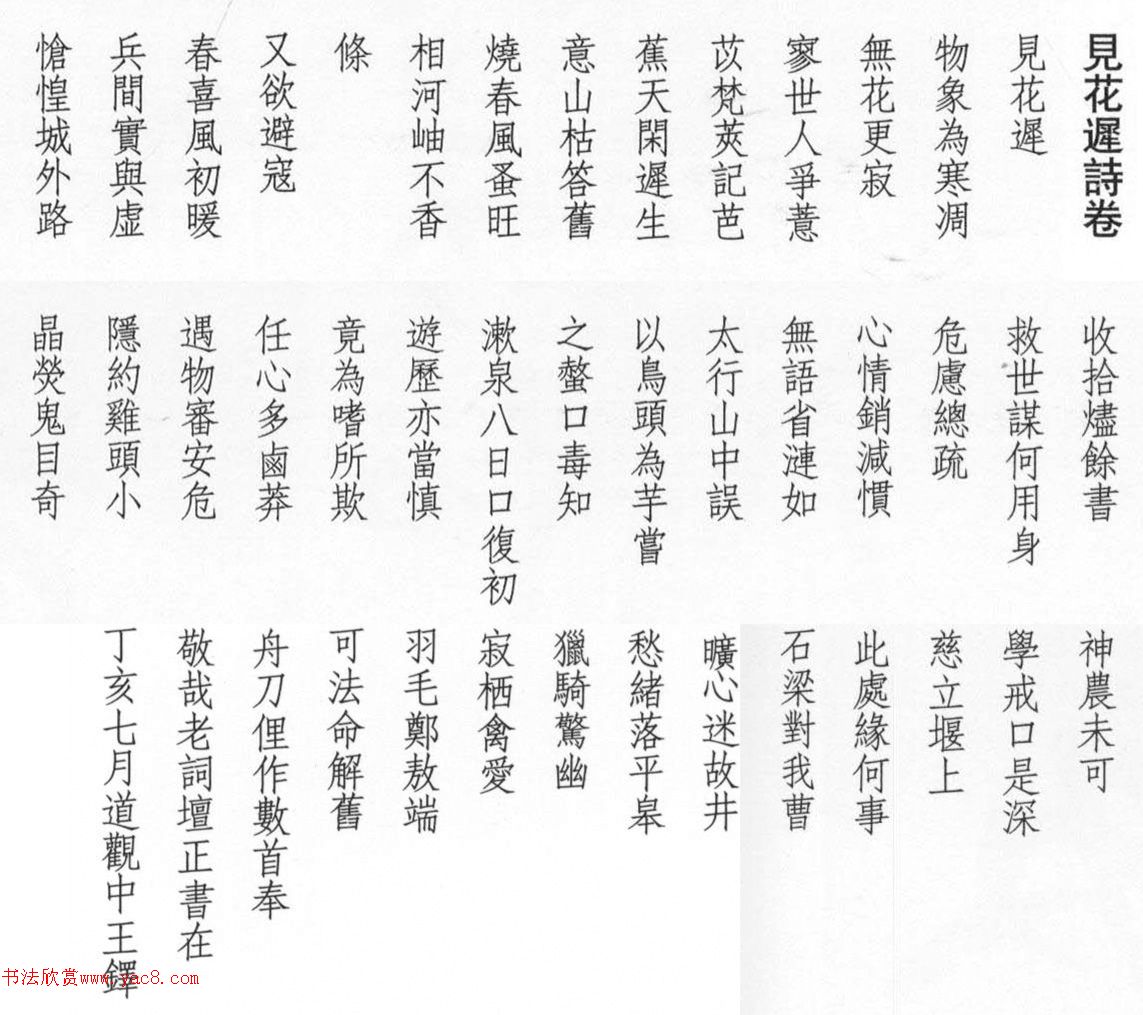 見花遲詩卷
見花遲
物象為寒凋
無花更寂
寥世人爭薏
苡梵莢記芭
蕉天閑遲生
意山枯答舊
燒春風蚤旺
相河岫不香
條
又欲避寇
春喜風初暖
兵間實與虛
愴惶城外路
收拾燼餘書
救世謀何用身
危慮總疏
心情銷減慣
無語省漣如
太行山中誤
以鳥頭為芋嘗
之螫口毒知
漱泉八日口復初
遊歷亦當慎
竟為嗜所欺
任心多鹵莽
遇物審安危
隱約雞頭小
晶熒鬼目奇
神農未可
學戒口是深
慈立堰上
此處緣何事
石梁對我曹
曠心迷故井
愁緒落平皋
獵騎驚幽
寂栖禽愛
羽毛鄭敖端
可法命解舊
舟刀俚作數首奉
敬哉老詞壇正書在
丁亥七月道觀中王鐸
书法欣赏www.yac8.com